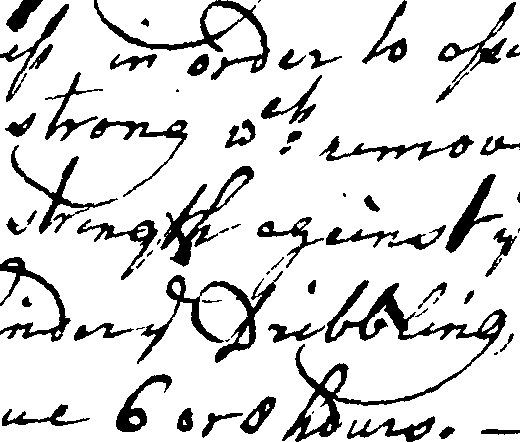 in order to
strong wch: remov
strength against y
inder ye Dribbling,
ue 6 or 8 hours. —